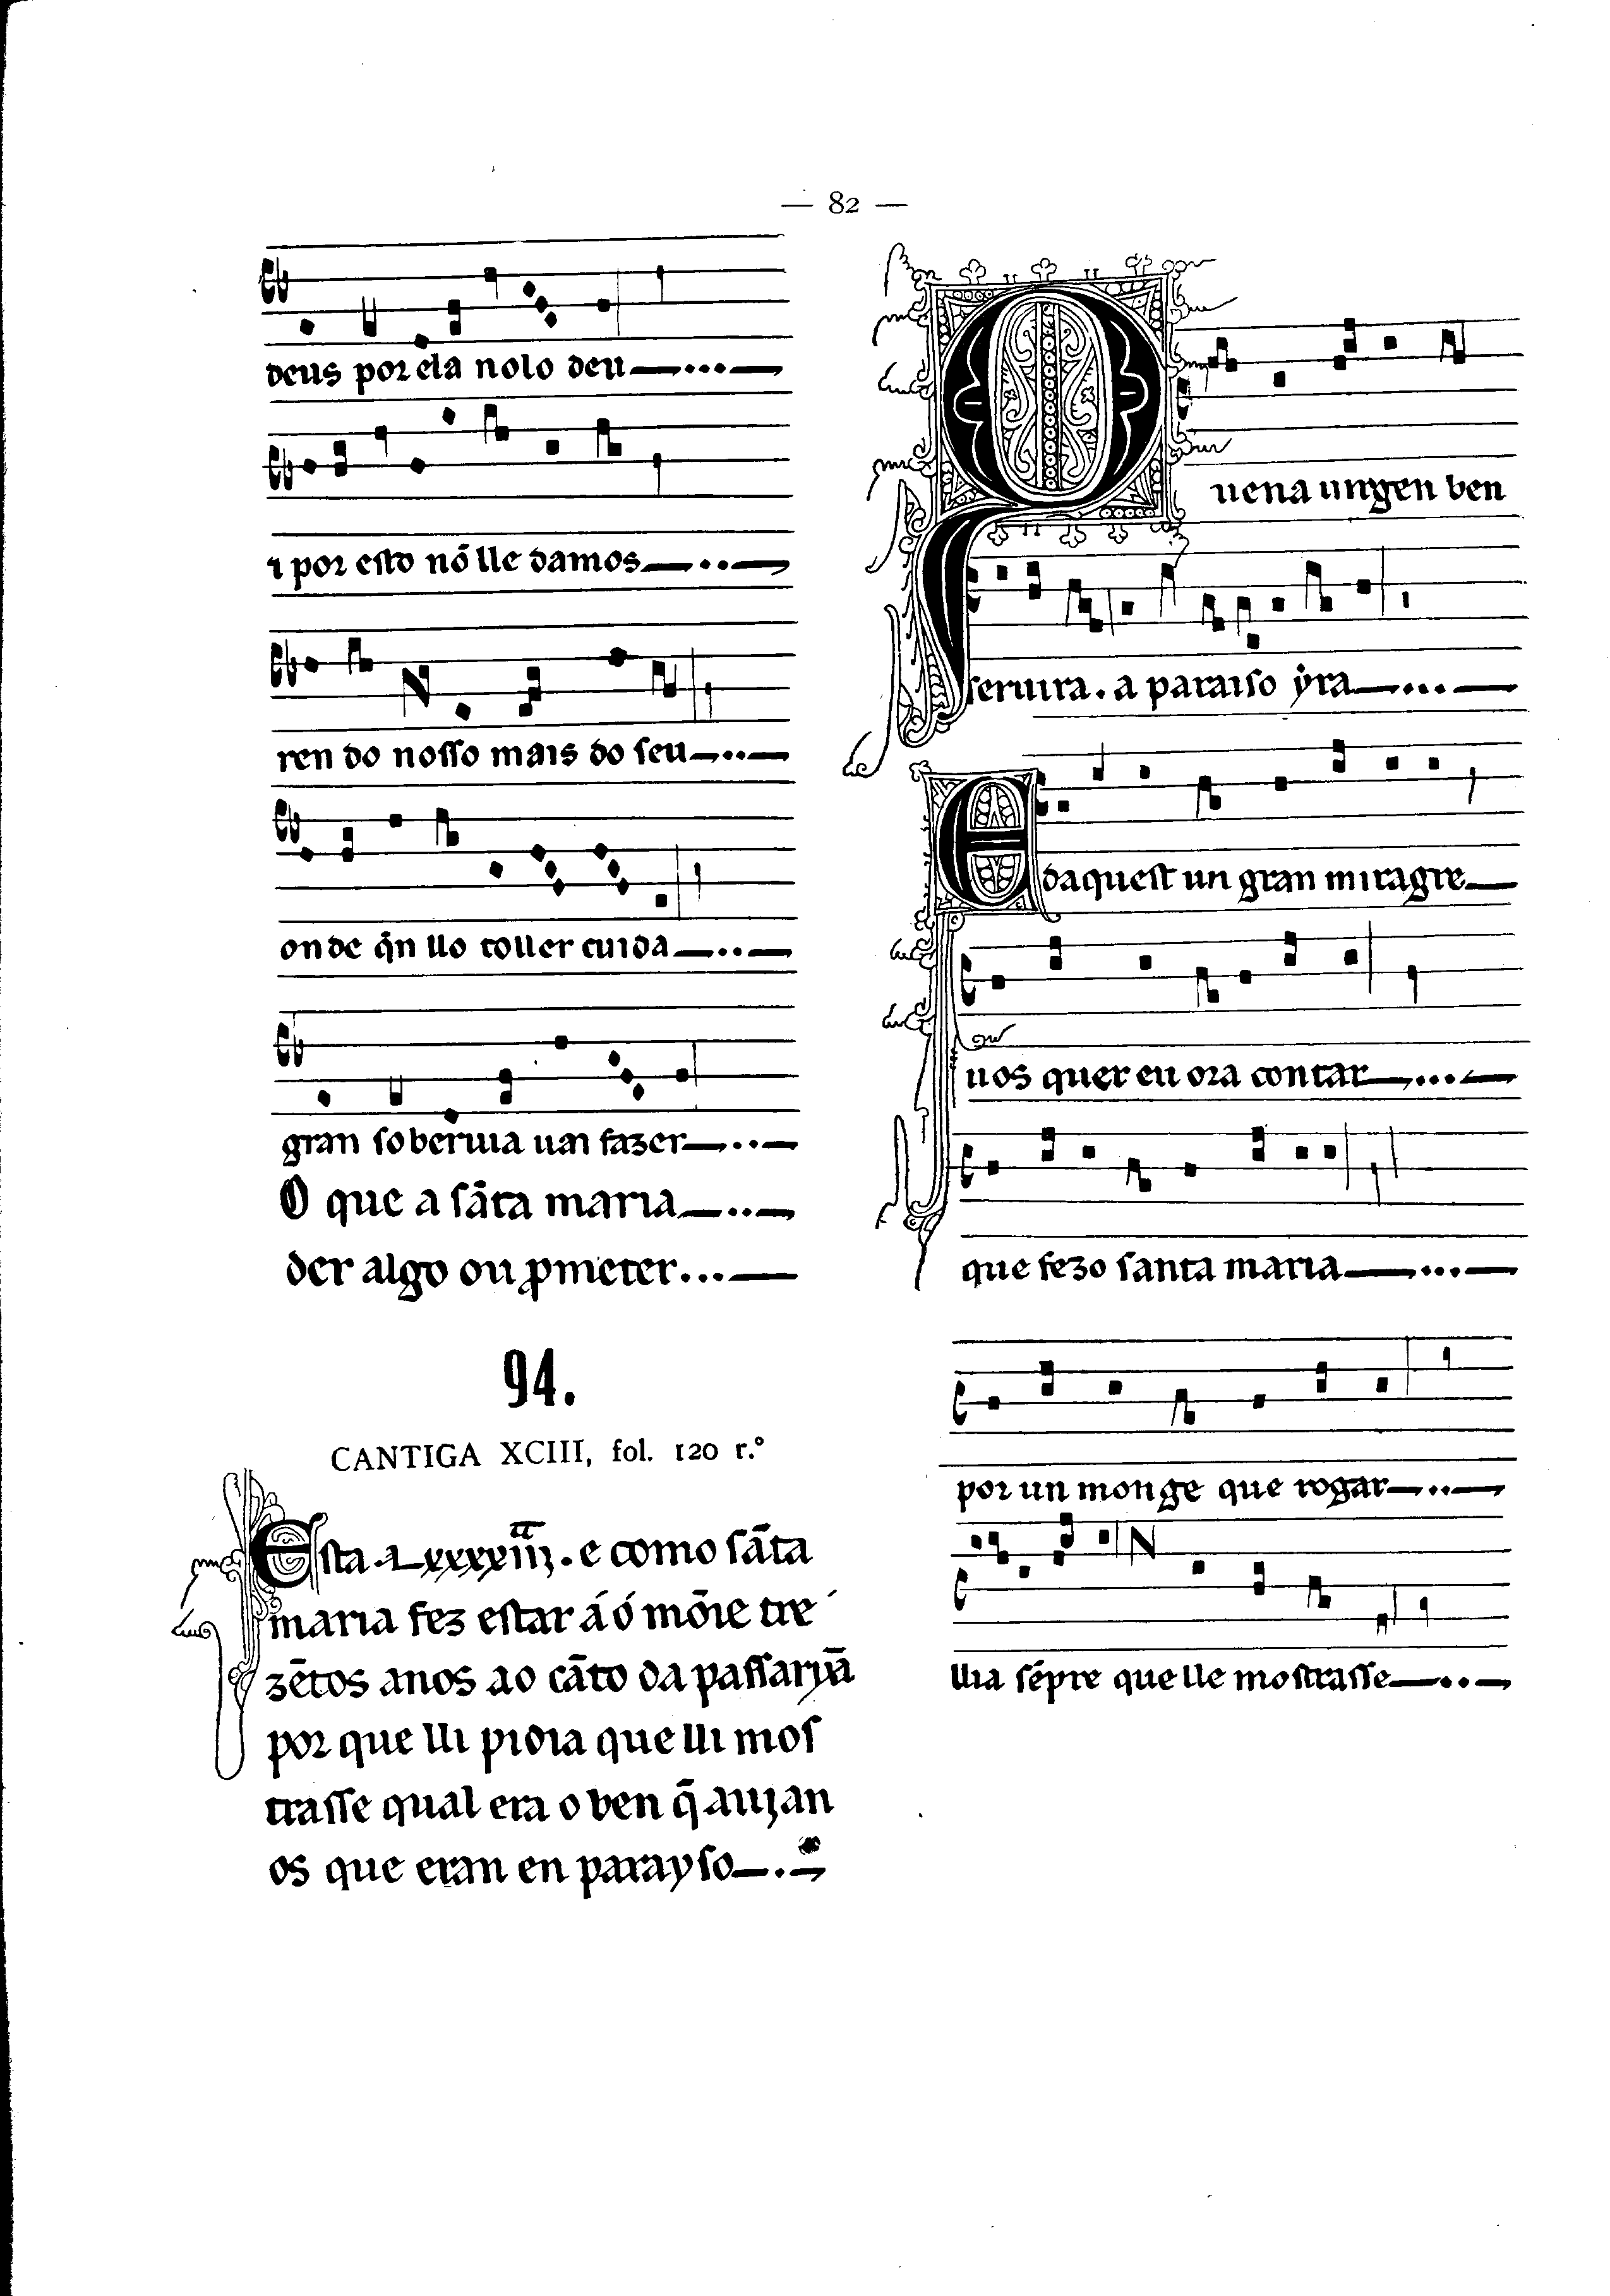 — 82 —
deus por ela nolo deu
ı por esto nõ lle damos
ren do nosso mais do seu
onde q̄n llo toller cuida
gran soberuia uai fazer
O que a sãta maria
der algo ou ꝓmeter...
94.
CANTIGA XCIII, fol. 120 r.º
Esta . e como sãta
maria fez estar á ó mõie tre
zẽtos anos ao cãto da passarỹa
por que lli pidia que lli mos
trasse qual era o ben q̄ auian
os que eran en parayso
Quena uirgen ben
seruira. a paraiso ẏra
E daquest un gran miragre
uos quer eu ora contar
que fezo santa maria
por un monge que rogar
llia sẽpre que lle mostrasse